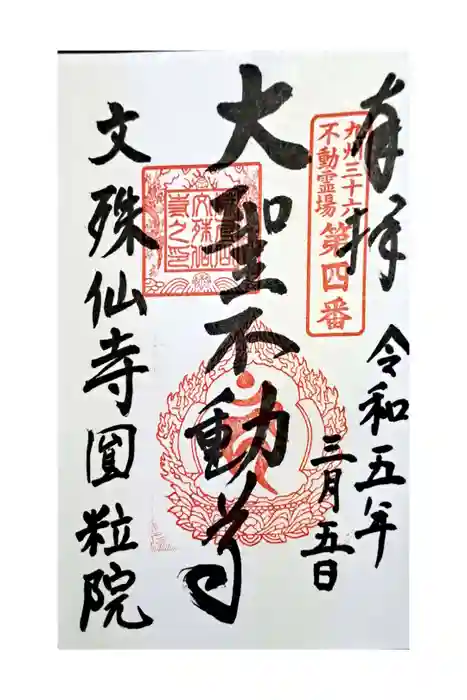 奉拝
令和五年
三月五日
九州三十六
不動霊場
第四番
大聖不動尊
文殊仙寺圓粒院